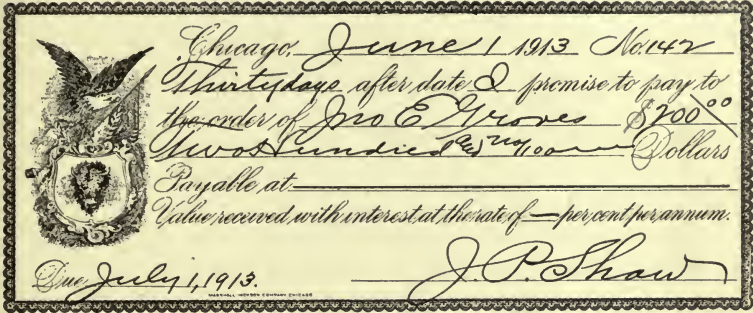 Chicago, June 1 1913 No. 142
Thirty days after date I promise to pay to
the order of Jno E Groves $200 00
Two Hundred and no/100 Dollars
Payable at
Value received with interest at the rate of — per cent per annum.
J. P. Shaw
Due July 1, 1913.
MARSHALL JACKSON COMPANY CHICAGO